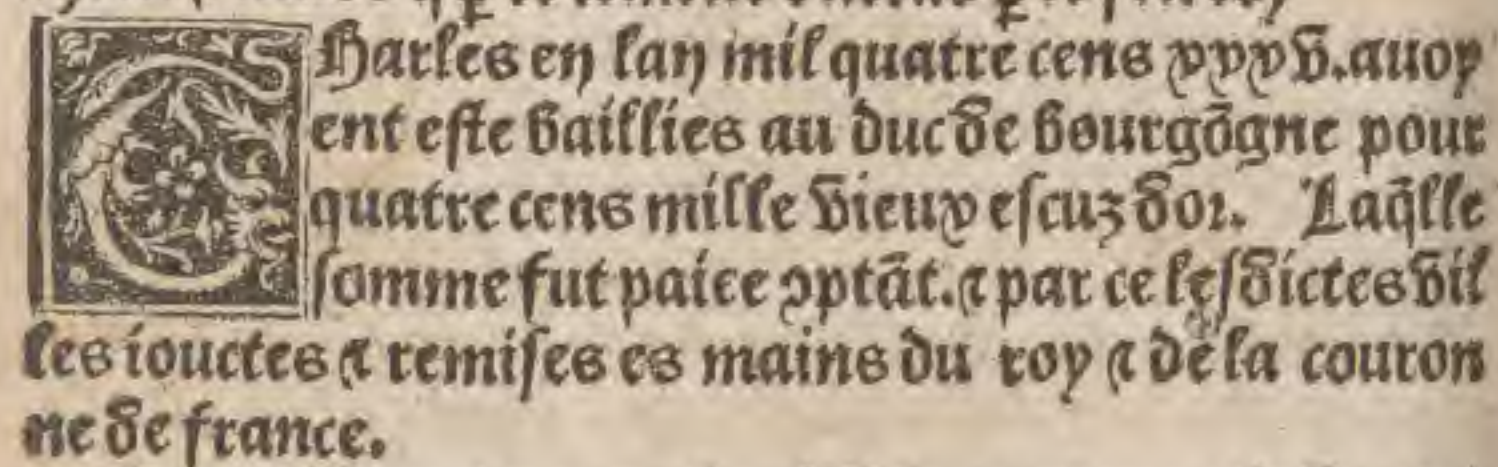 CHarles en lan mil quatre cens xxxv. auoy
ent este baillies au duc de bourgõgne pour
quatre cens mille vieux escuz dor. Laq̃lle
somme fut paiee ꝯptãt. ⁊ par ce lesdictes vil
les iouctes ⁊ remises es mains du roy ⁊ de la couron
ne de france.